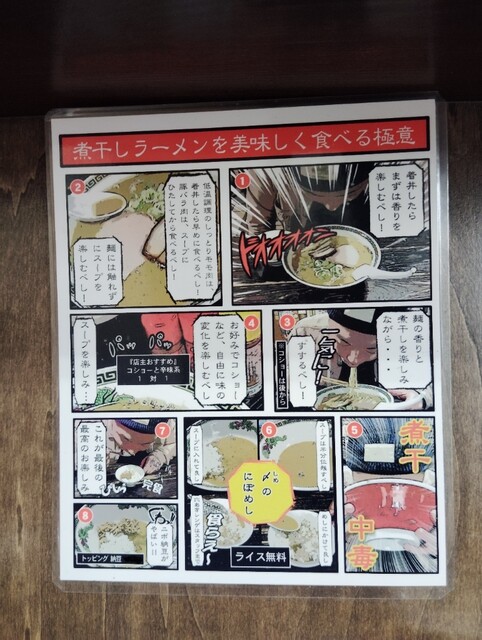 煮干しラーメンを美味しく食べる極意
1
着丼したら
まずは香りを
楽しむべし!
ドオオオオン
2
低温調理のしっとりモモ肉は、
着丼したら早めに食べるべし!
豚バラ肉は、スープに
ひたしてから食べるべし!
麺には触れず
にスープを
楽しむべし!
3
麺の香りと
煮干しを楽しみ
ながら・・・
一気に!
すするべし!
コショーは後から
4
お好みでコショー
など、自由に味の
変化を楽しむべし
パッ パッ
『店主おすすめ』
コショーと辛味系
1 対 1
スープを楽しみ…
5
煮干
中毒
6
〆の
しめ
にぼめし
スープに入れて良し
食らえ〜
ライス無料
7
これが最後の
最高のお楽しみ
完食
8
トッピング 納豆
ニボ納豆が
やばい!!